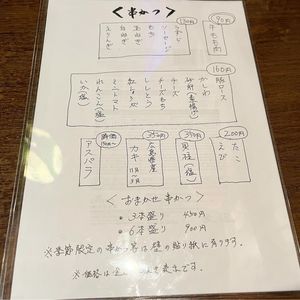 ＜串かつ＞
190円
牛もも肉
130円
うずら
ソーセージ
もち
玉ねぎ
白ねぎ
えりんぎ
160円
豚ロース
かしわ
砂肝(素揚げ)
チーズ
チーズもち
ししとう
紅しょうが
ミニトマト
れんこん(塩)
いか(塩)
200円
たこ
えび
350円
貝柱(塩)
350円
広島県産
カキ
11月〜3月
時価
アスパラ
＜おまかせ串かつ＞
・3本盛り 450円
・6本盛り 900円
※季節限定の串かつ等は壁の貼り紙に有ります。
※価格は全て